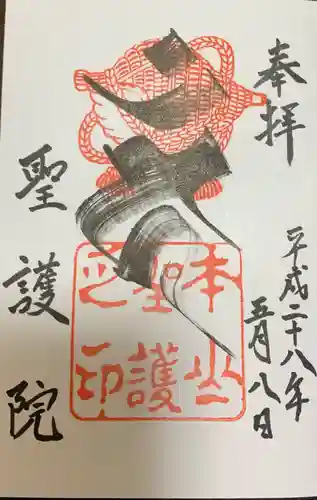 奉拝
平成二十八年
五月八日
本山
聖護
之印
聖護院